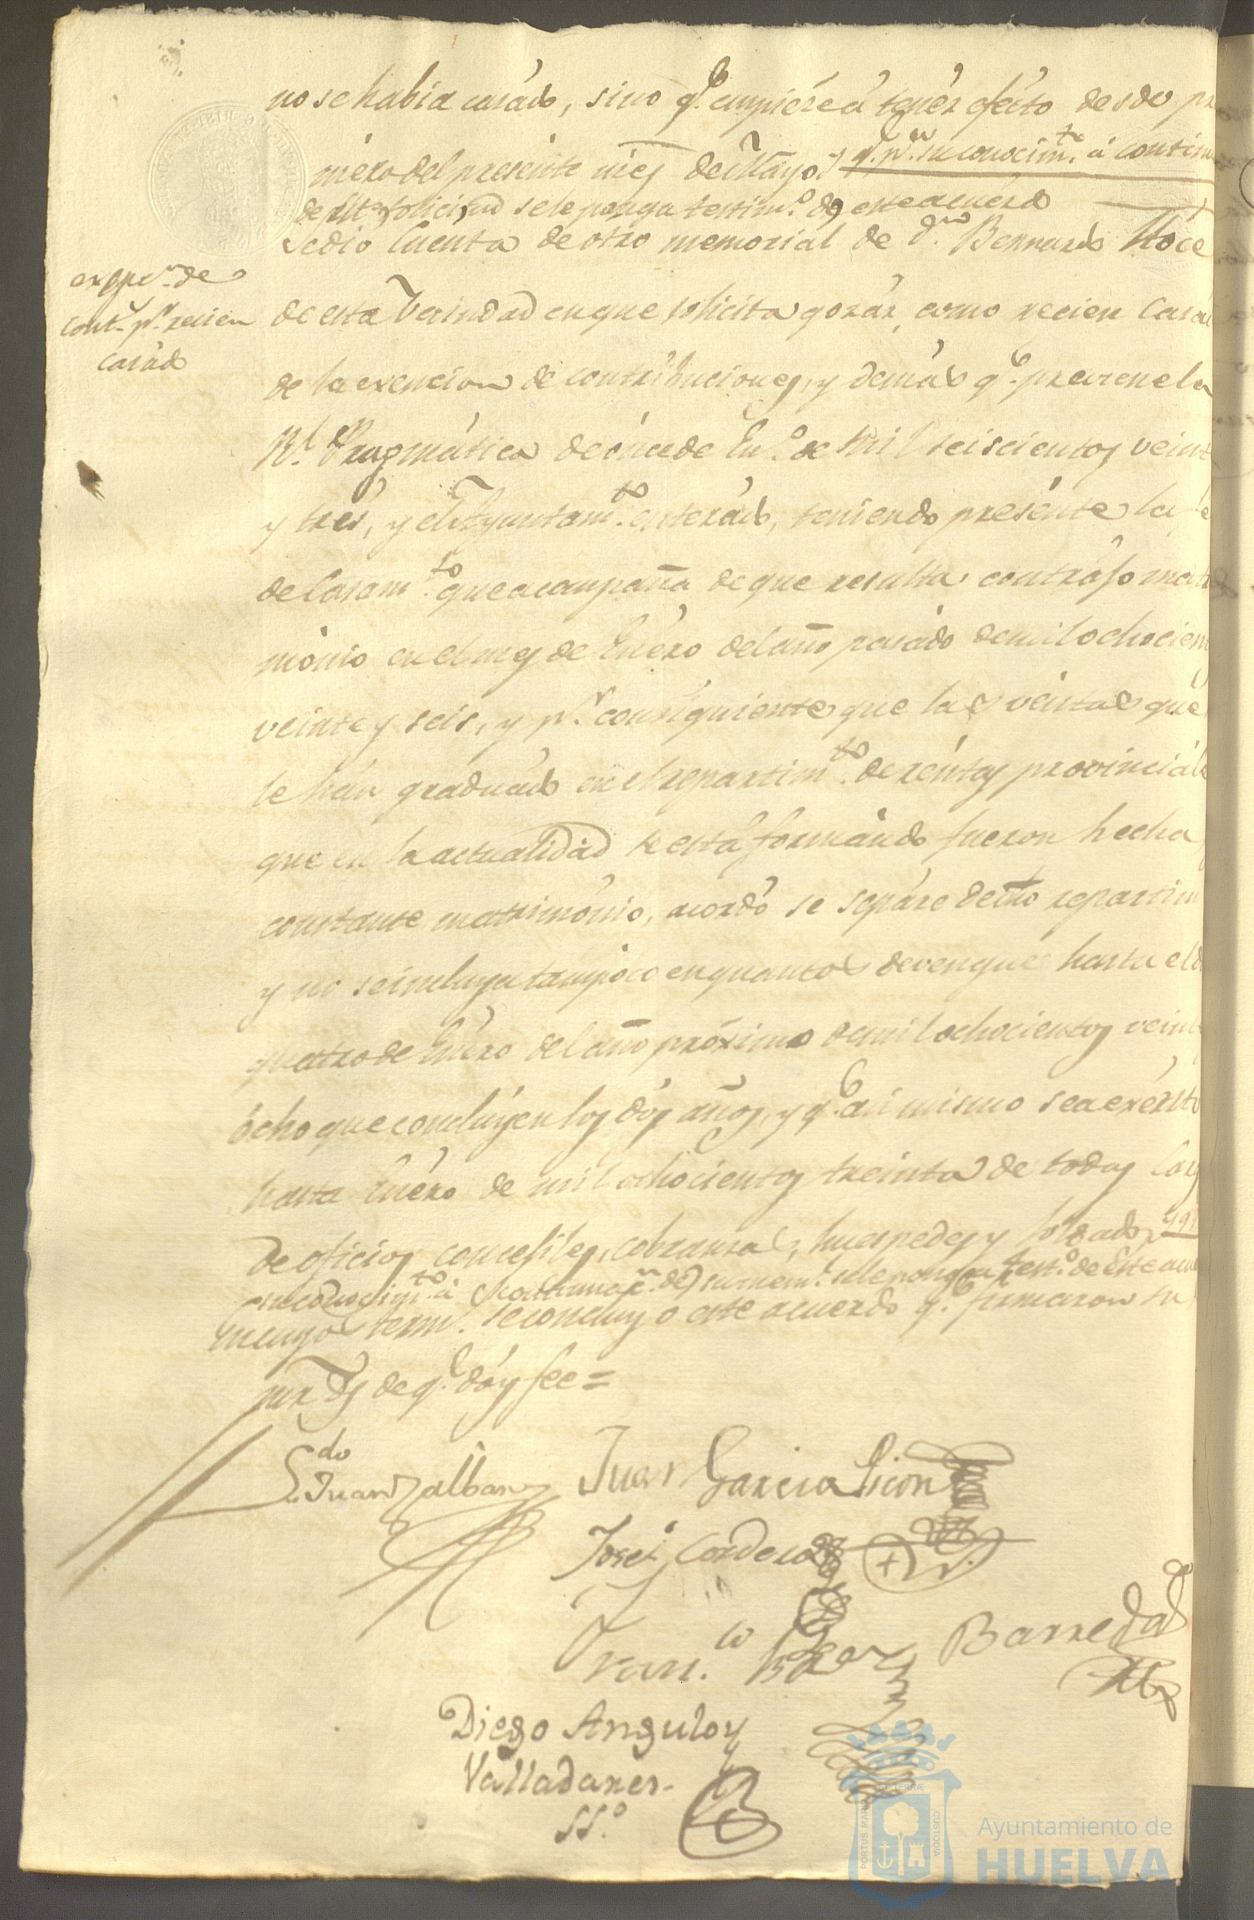 no se habia casado, sino q.e empiese á tenér efecto desde pr
mero del presente mes de Mayo y q.e p.a su conocim.to á contin
de esta solicitud se le ponga testim.o de este acuerdo
Se dio Cuenta de otro memorial de d.n Bernardo
exepc.n de
cont.s p.r recien
casado
de esta Vecindad en que solicita gozár, como recien Casá
de la exencion de contribuciones, y demás q.e previene la
R.l Pragmática de once de En.o de mil seiscientos veint
y trés, y el Ayuntam.to enterado, teniendo presénte la
de Casam.to que acompaña de que resulta contrajo matri
mónio en el mes de Enéro del año pasádo de mil ochocien
veinte y seis, y p.r consiguiente que las véntas que
le hán graduado en el repartim.to de réntas provinciál
que en la actualidad se está formándo fueron hecha
constante matrimónio, acordó se sepáre de dho repartim
y no se incluya tampóco en quantos devengue hasta el d
quatro de Enéro del año próximo de mil ochocientos veint
ócho que conclúyen los dós años, y q.e asi mismo sea exénto
hasta Enéro de mil ochocientos treinta de todas las
de oficios concejiles, cobranzas, huespedes y soldados
su conocim.to á continuac.n de su mem.l se le ponga test.o de éste acue
en cuyos term.s se concluyo este acuerdo q.e firmaron su
mrds de q.e dóy fee =
L.do Juan Zalban
Juan Garcia Picon
José Cordero
Fran.co
Barreda
Diego Angulo y
Valladares
SS.o
Ayuntamiento de
HUELVA